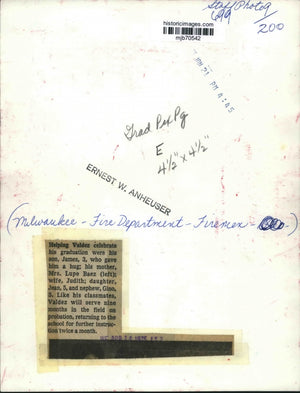 Staff Photog
historicimages.com
mjb70542
200
Grad Pix Pg
E
4½" x 4½"
ERNEST W. ANHEUSER
(Milwaukee - Fire Department - Firemen -
Helping Valdez celebrate
his graduation were his
son, James, 2, who gave
him a hug; his mother,
Mrs. Lupe Baez (left);
wife, Judith; daughter,
Jean, 5, and nephew, Gino,
5. Like his classmates,
Valdez will serve nine
months in the field on
probation, returning to the
school for further instruc-
tion twice a month.